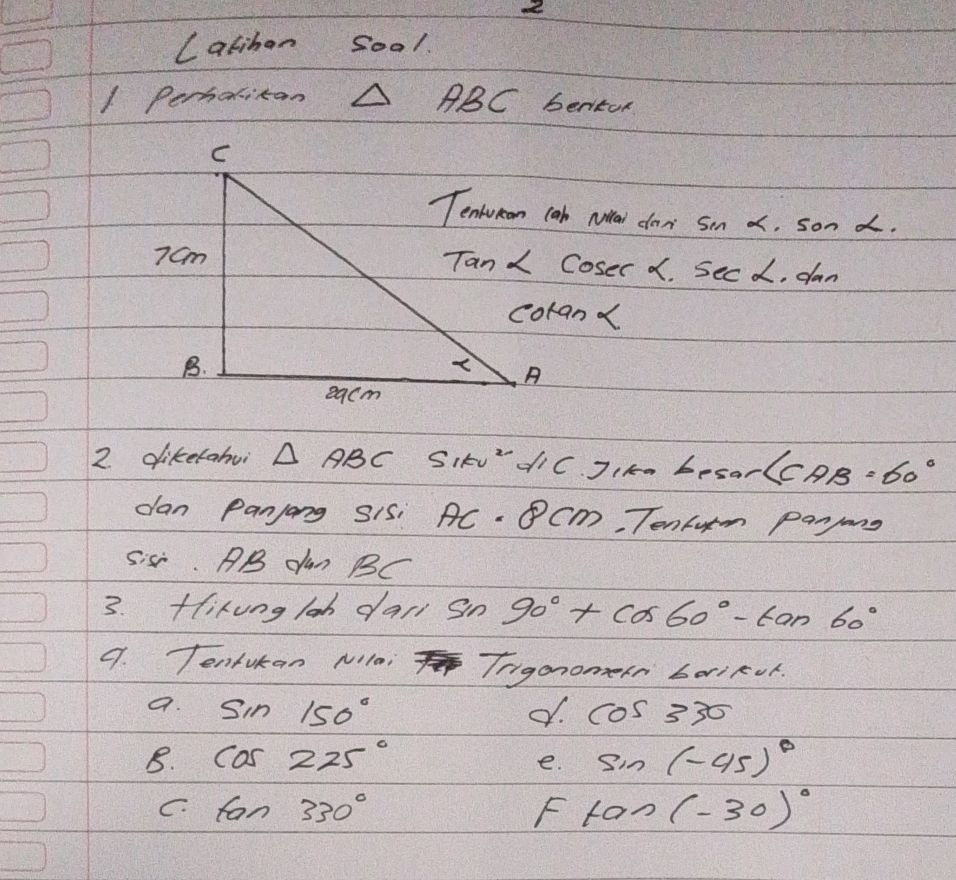 2
Latihan Soal.
1 Perhatikan △ ABC berikut
C
Tentukan lah Nilai dari Sin α. son α.
7cm
Tan α Cosec α. Sec α. dan
cotan α
α
B.
A
24cm
2 diketahui △ ABC Siku²" di C. Jika besar ∠CAB = 60°
dan Panjang sisi AC = 8 cm. Tentukan panjang
sisi. AB dan BC
3. Hitung lah dari Sin 90° + cos 60° - tan 60°
4. Tentukan Nilai Trigonometri berikut.
a. Sin 150°
d. cos 330
B. Cos 225°
e. Sin (-45)°
C. tan 330°
F tan (-30)°